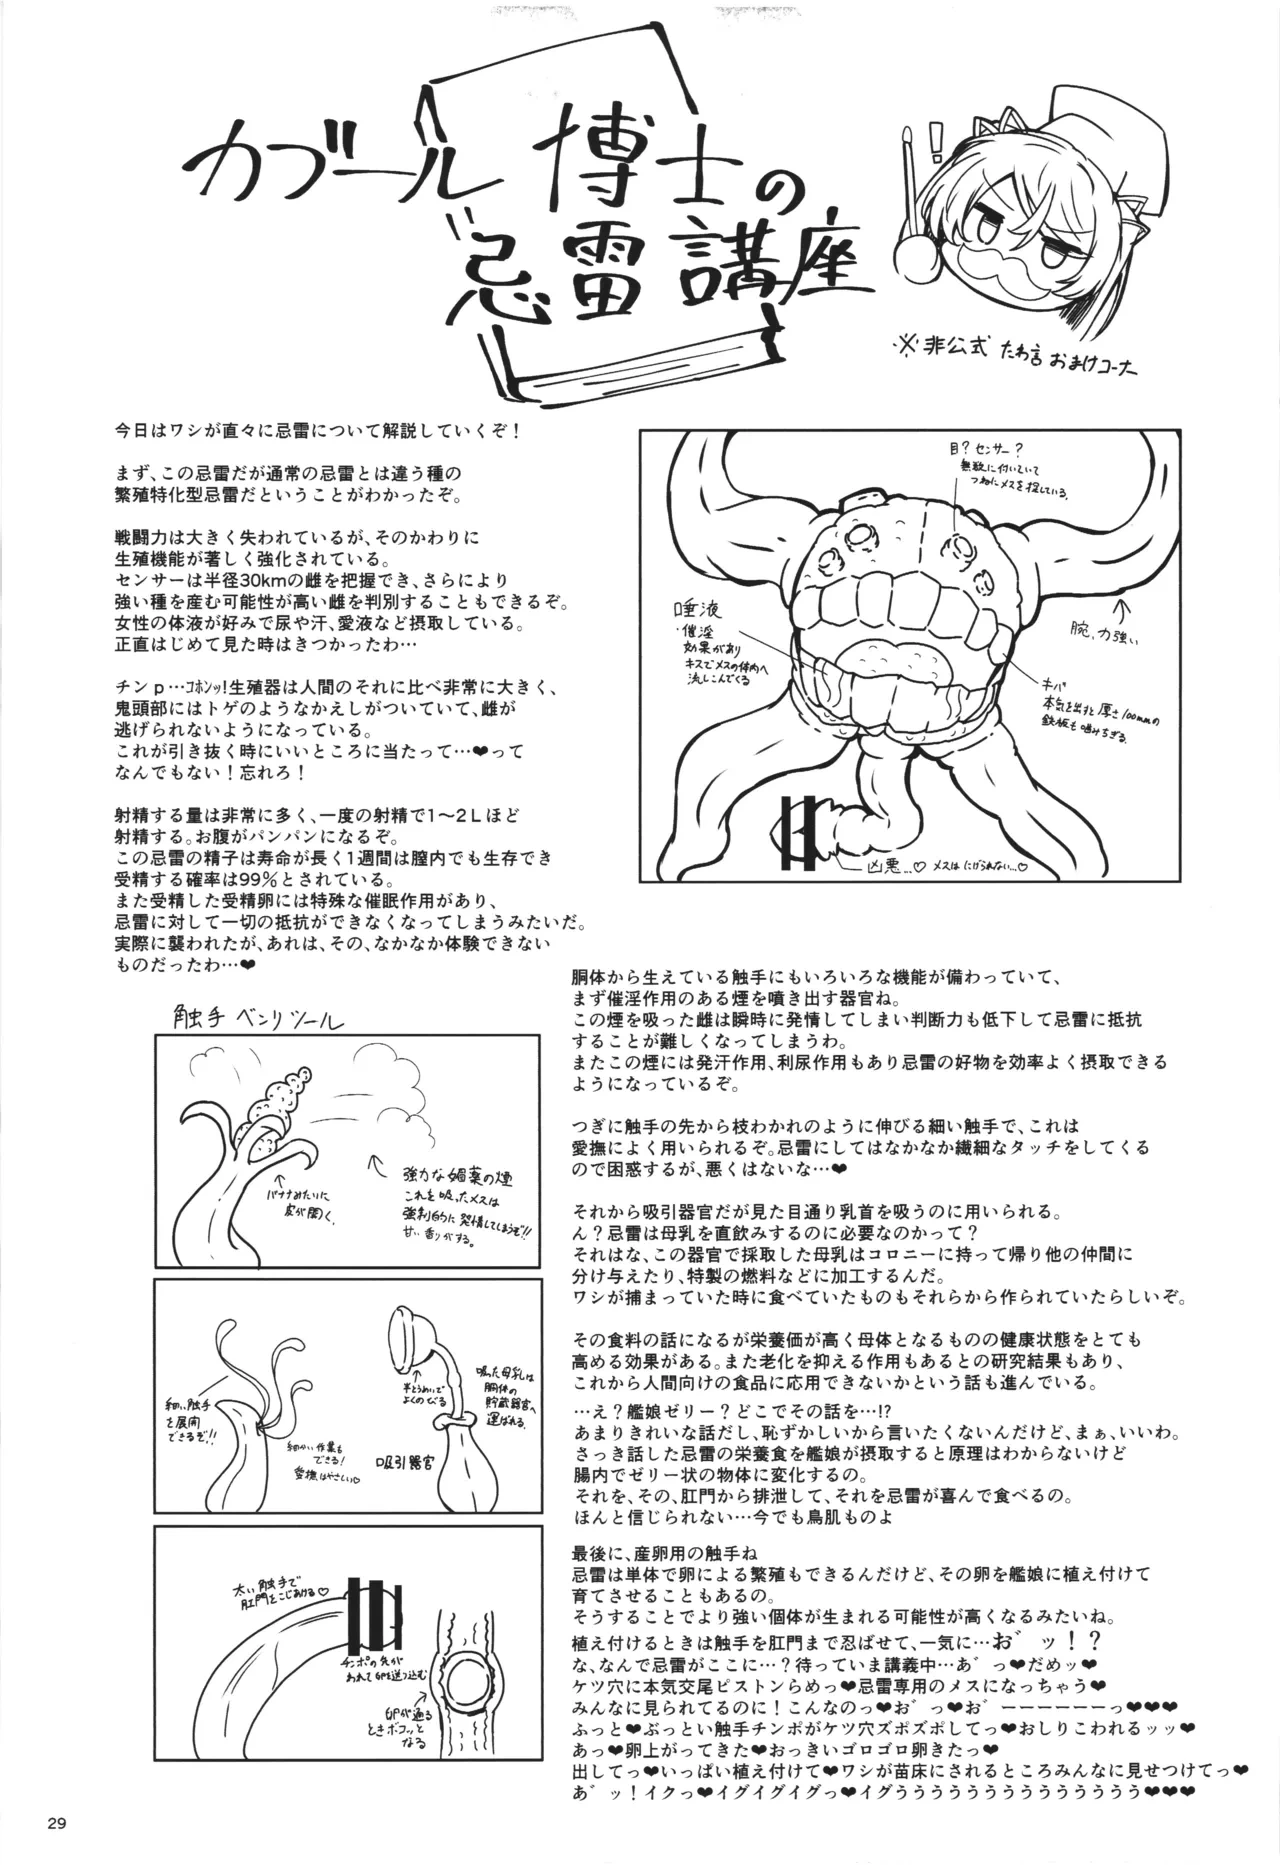 カブール博士の
忌雷講座
!
※非公式 たわ言 おまけコーナー
今日はワシが直々に忌雷について解説していくぞ！
まず、この忌雷だが通常の忌雷とは違う種の
繁殖特化型忌雷だということがわかったぞ。
戦闘力は大きく失われているが、そのかわりに
生殖機能が著しく強化されている。
センサーは半径30kmの雌を把握でき、さらにより
強い種を産む可能性が高い雌を判別することもできるぞ。
女性の体液が好みで尿や汗、愛液など摂取している。
正直はじめて見た時はきつかったわ…
チンｐ…ｺﾎﾝｯ!生殖器は人間のそれに比べ非常に大きく、
鬼頭部にはトゲのようなかえしがついていて、雌が
逃げられないようになっている。
これが引き抜く時にいいところに当たって…❤って
なんでもない！忘れろ！
射精する量は非常に多く、一度の射精で1～2Lほど
射精する。お腹がパンパンになるぞ。
この忌雷の精子は寿命が長く1週間は膣内でも生存でき
受精する確率は99％とされている。
また受精した受精卵には特殊な催眠作用があり、
忌雷に対して一切の抵抗ができなくなってしまうみたいだ。
実際に襲われたが、あれは、その、なかなか体験できない
ものだったわ…❤
目？センサー？
無数に付いていて
つねにメスを探している。
唾液
・催淫
効果があり
キスでメスの体内へ
流しこんでくる
腕、力強い
キバ
本気を出すと厚さ100mmの
鉄板も噛みちぎる。
凶悪…♡ メスはにげられない…♡
胴体から生えている触手にもいろいろな機能が備わっていて、
まず催淫作用のある煙を噴き出す器官ね。
この煙を吸った雌は瞬時に発情してしまい判断力も低下して忌雷に抵抗
することが難しくなってしまうわ。
またこの煙には発汗作用、利尿作用もあり忌雷の好物を効率よく摂取できる
ようになっているぞ。
つぎに触手の先から枝わかれのように伸びる細い触手で、これは
愛撫によく用いられるぞ。忌雷にしてはなかなか繊細なタッチをしてくる
ので困惑するが、悪くはないな…❤
それから吸引器官だが見た目通り乳首を吸うのに用いられる。
ん？忌雷は母乳を直飲みするのに必要なのかって？
それはな、この器官で採取した母乳はコロニーに持って帰り他の仲間に
分け与えたり、特製の燃料などに加工するんだ。
ワシが捕まっていた時に食べていたものもそれらから作られていたらしいぞ。
その食料の話になるが栄養価が高く母体となるものの健康状態をとても
高める効果がある。また老化を抑える作用もあるとの研究結果もあり、
これから人間向けの食品に応用できないかという話も進んでいる。
…え？艦娘ゼリー？どこでその話を…!?
あまりきれいな話だし、恥ずかしいから言いたくないんだけど、まぁ、いいわ。
さっき話した忌雷の栄養食を艦娘が摂取すると原理はわからないけど
腸内でゼリー状の物体に変化するの。
それを、その、肛門から排泄して、それを忌雷が喜んで食べるの。
ほんと信じられない…今でも鳥肌ものよ
最後に、産卵用の触手ね
忌雷は単体で卵による繁殖もできるんだけど、その卵を艦娘に植え付けて
育てさせることもあるの。
そうすることでより強い個体が生まれる可能性が高くなるみたいね。
植え付けるときは触手を肛門まで忍ばせて、一気に…お゛ッ！？
な、なんで忌雷がここに…？待っていま講義中…あ゛っ❤だめッ❤
ケツ穴に本気交尾ピストンらめっ❤忌雷専用のメスになっちゃう❤
みんなに見られてるのに！こんなのっ❤お゛っ❤お゛ーーーーーーっ❤❤❤
ふっと❤ぶっとい触手チンポがケツ穴ズポズポしてっ❤おしりこわれるッッ❤
あっ❤卵上がってきた❤おっきいゴロゴロ卵きたっ❤
出してっ❤いっぱい植え付けて❤ワシが苗床にされるところみんなに見せつけてっ❤
あ゛ッ！イクっ❤イグイグイグっ❤イグううううううううううううううう❤❤❤
触手 ベンリツール
バナナみたいに
皮が開く。
強力な媚薬の煙
これを吸ったメスは
強制的に発情してしまうぞ!!
甘い香りがする。
細い触手
を展開
できるぞ!!
細かい作業も
できる！
愛撫はやさしい♡
半とうめいで
よくのびる
吸った母乳は
胴体の
貯蔵器官へ
運ばれる。
吸引器官
太い触手で
肛門をこじあける♡
チンポの先が
われて卵を送り込む
卵が通る
ときボコッと
なる
29